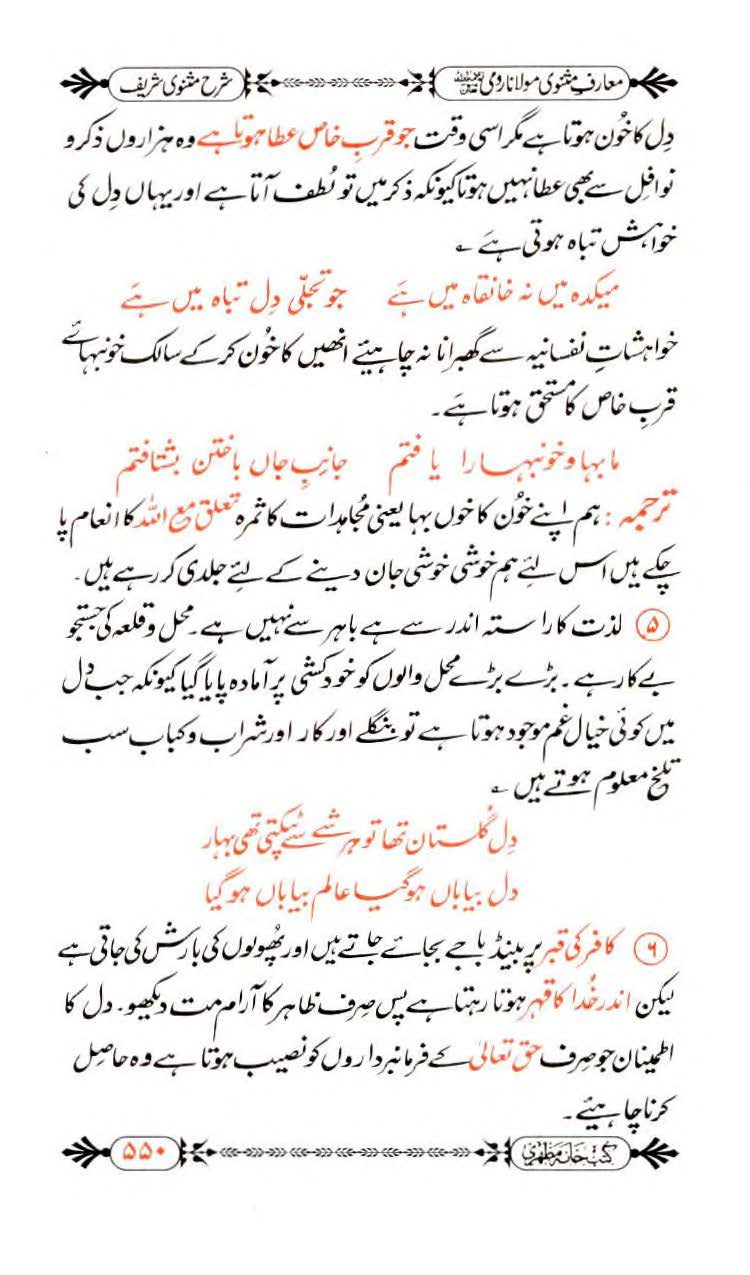 معارفِ مثنوی مولانا رومی رحمۃ اللہ علیہ شرح مثنوی شریف
دِل کا خُون ہوتا ہے مگر اسی وقت جو قربِ خاص عطا ہوتا ہے وہ ہزاروں ذکر و
نوافل سے بھی عطا نہیں ہوتا کیونکہ ذکر میں تو لُطف آتا ہے اور یہاں دِل کی
خواہش تباہ ہوتی ہے ؎
میکدہ میں نہ خانقاہ میں ہے جو تجلّی دِل تباہ میں ہے
خواہشاتِ نفسانیہ سے گھبرانا نہ چاہیئے انھیں کا خُون کر کے سالک خونبہائے
قربِ خاص کا مستحق ہوتا ہے۔
ما بہا و خونبہا را یافتم جانبِ جاں باختن بشتافتم
ترجمہ : ہم اپنے خُون کا خوں بہا یعنی مجاہدات کا ثمرہ تعلق مع اللہ کا انعام پا
چکے ہیں اس لئے ہم خوشی خوشی جان دینے کے لئے جلدی کر رہے ہیں۔
۵ لذت کا راستہ اندر سے ہے باہر سے نہیں ہے۔ محل و قلعہ کی جستجو
بے کار ہے۔ بڑے بڑے محل والوں کو خودکشی پر آمادہ پایا گیا کیونکہ جب دل
میں کوئی خیال غم موجود ہوتا ہے تو بنگلے اور کار اور شراب و کباب سب
تلخ معلوم ہوتے ہیں ؎
دِل گُلستان تھا تو ہر شے سے ٹپکتی تھی بہار
دل بیاباں ہو گیا عالم بیاباں ہو گیا
۶ کافر کی قبر پر بینڈ باجے بجائے جاتے ہیں اور پھُولوں کی بارش کی جاتی ہے
لیکن اندر خُدا کا قہر ہوتا رہتا ہے پس صِرف ظاہر کا آرام مت دیکھو۔ دل کا
اطمینان جو صِرف حق تعالیٰ کے فرمانبرداروں کو نصیب ہوتا ہے وہ حاصِل
کرنا چاہیئے۔
کتب خانہ مظہری ۵۵۰